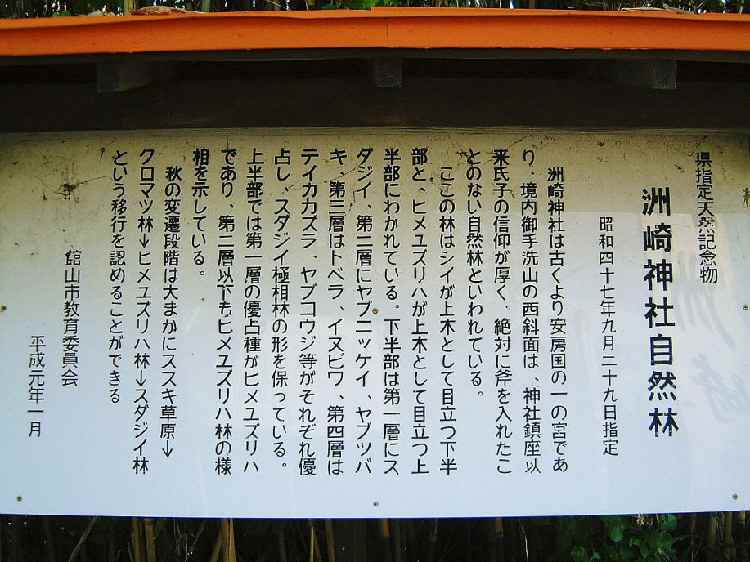 県指定天然記念物
洲崎神社自然林
昭和四十七年九月二十九日指定
洲崎神社は古くより安房国の一の宮であ
り、境内御手洗山の西斜面は、神社鎮座以
来氏子の信仰が厚く、絶対に斧を入れたこ
とのない自然林といわれている。
ここの林はシイが上木として目立つ下半
部と、ヒメユズリハが上木として目立つ上
半部にわかれている。下半部は第一層にス
ダジイ、第二層にヤブニッケイ、ヤブツバ
キ、第三層はトベラ、イヌビワ、第四層は
テイカカズラ、ヤブコウジ等がそれぞれ優
占し、スダジイ極相林の形を保っている。
上半部では第一層の優占種がヒメユズリハ
であり、第二層以下もヒメユズリハ林の様
相を示している。
秋の変遷段階は大まかにススキ草原→
クロマツ林→ヒメユズリハ林→スダジイ林
という移行を認めることができる
館山市教育委員会
平成元年一月